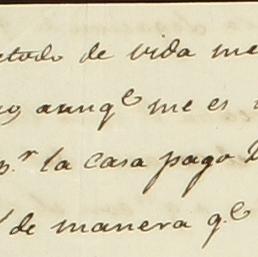 etodo de vida me
aunq.e me es
p.r la casa pago
de manera q.e